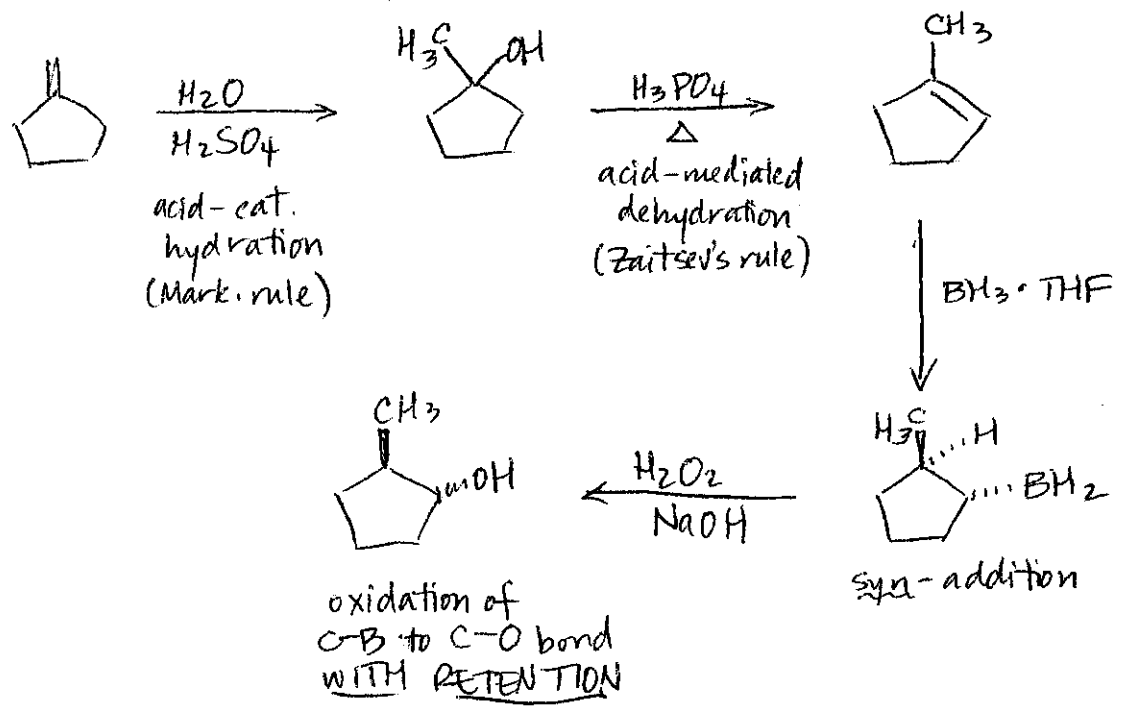 H3C OH
CH3
H2O
H2SO4
acid-cat.
hydration
(Mark. rule)
H3PO4
Δ
acid-mediated
dehydration
(Zaitsev's rule)
BH3 • THF
H3C H
BH2
syn-addition
H2O2
NaOH
CH3
OH
oxidation of
C-B to C-O bond
WITH RETENTION